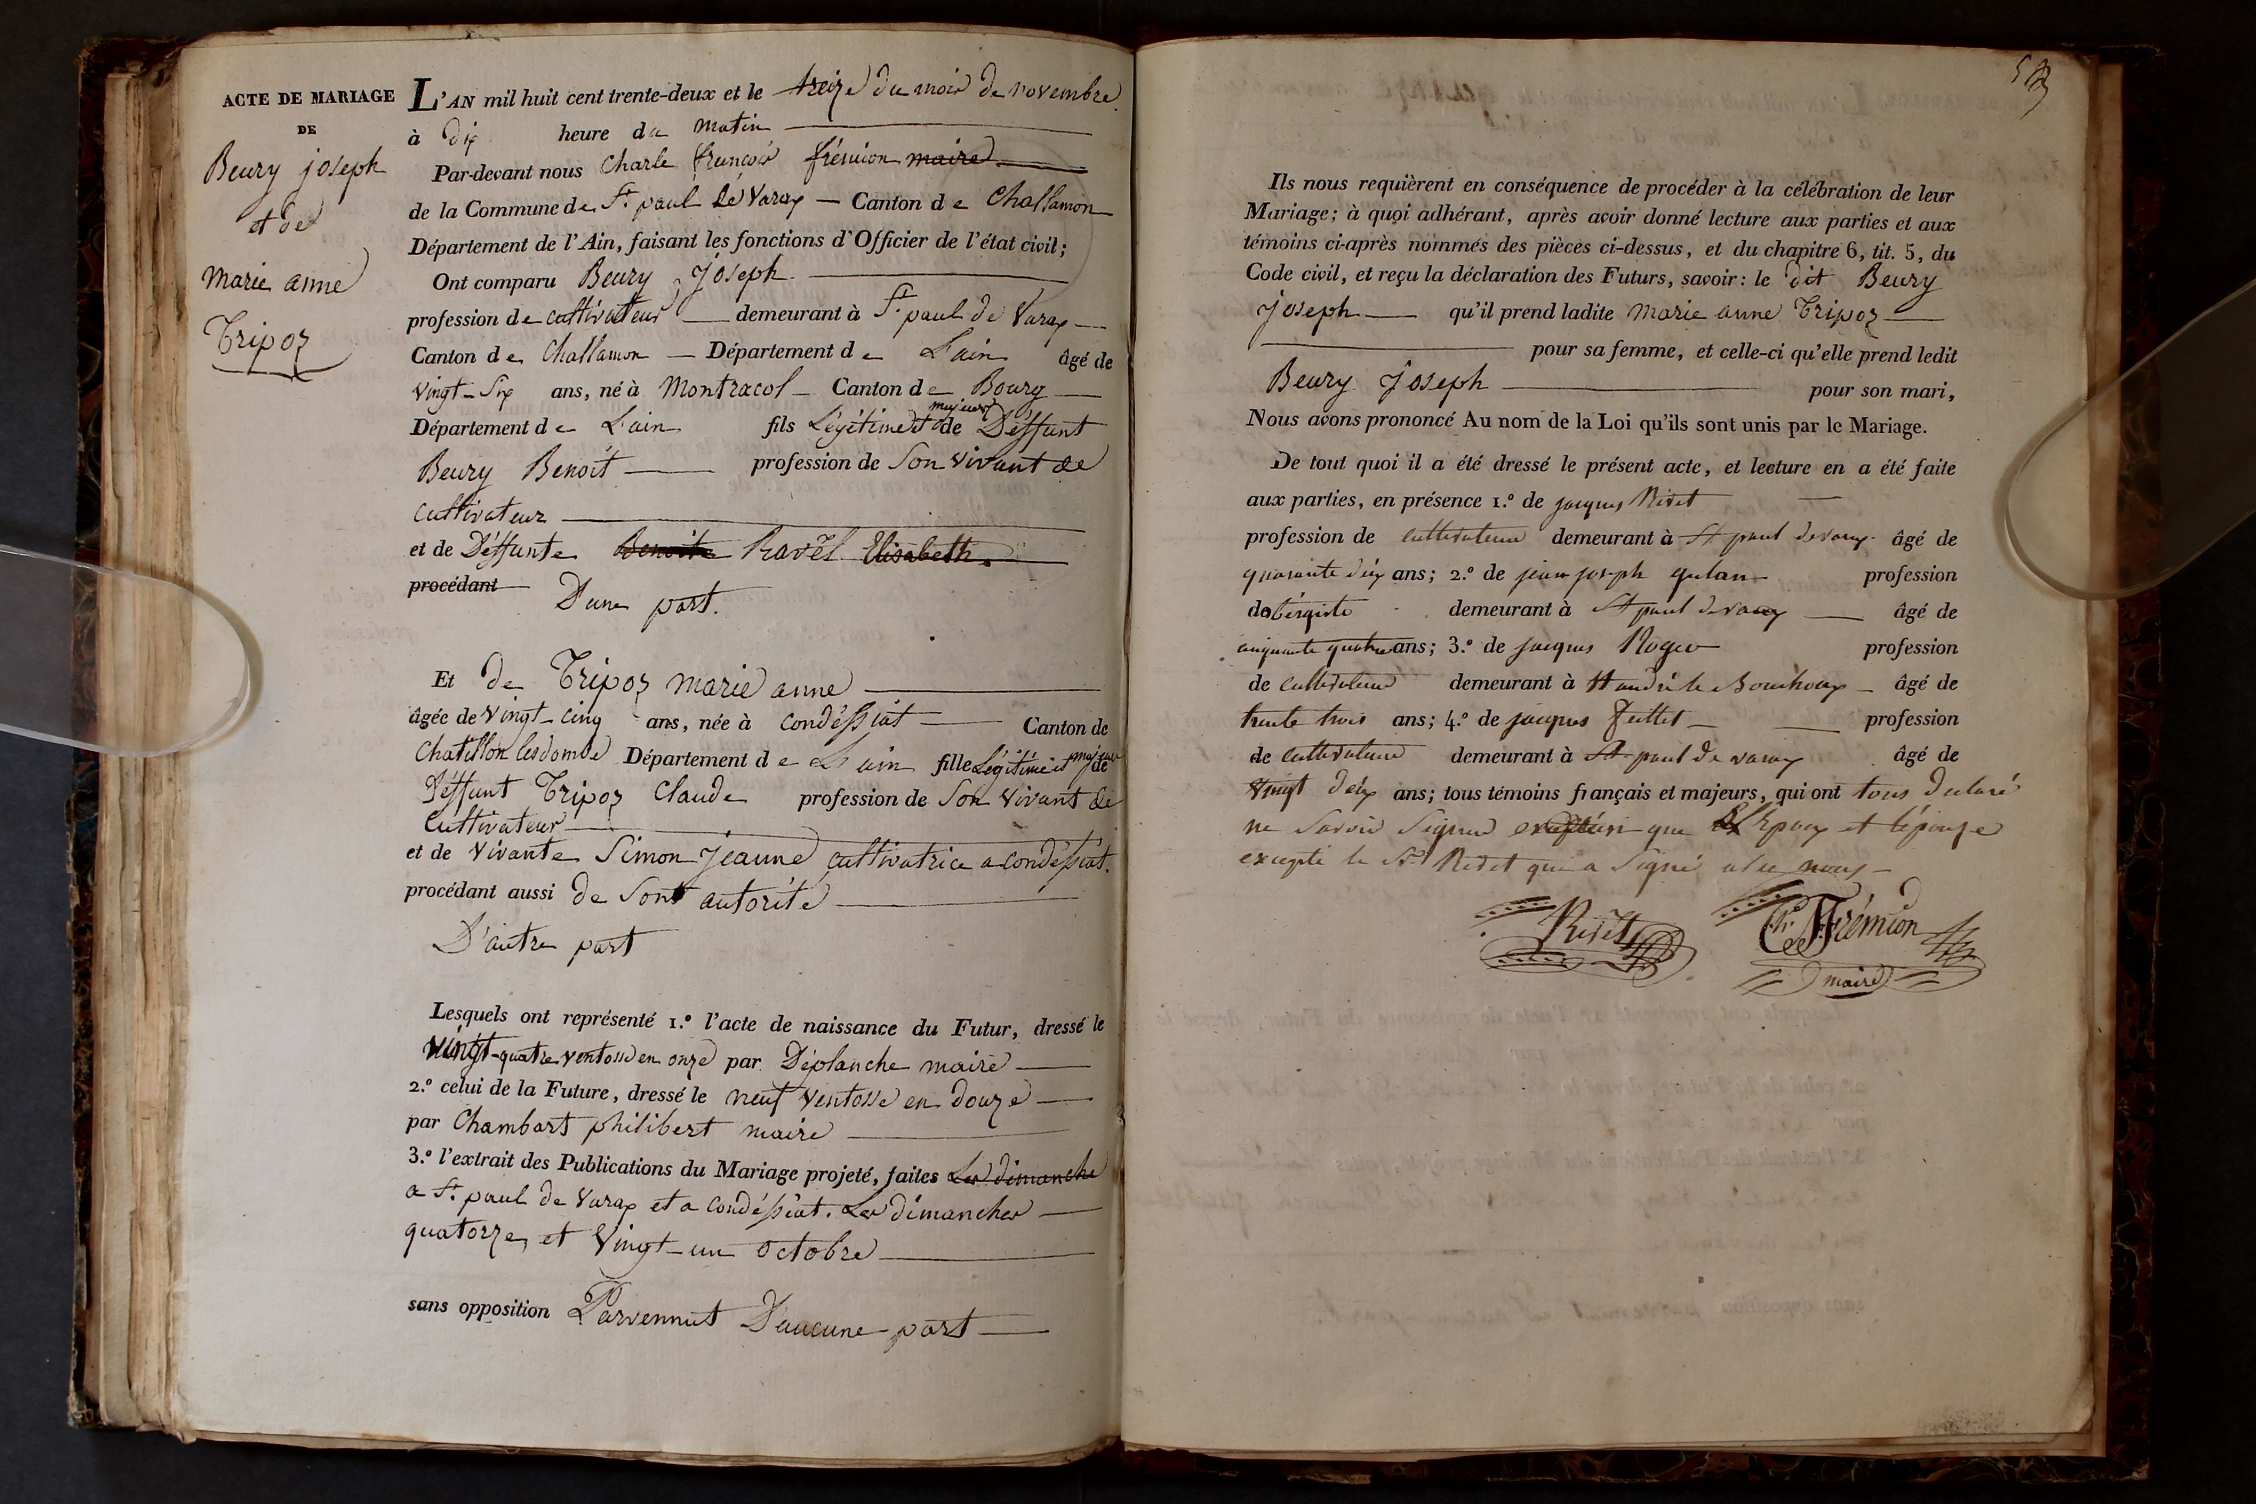 ACTE DE MARIAGE
DE
Beury joseph
et de
marie anne
Tripoz
L'AN mil huit cent trente-deux et le treize du mois de novembre
à dix heure du matin
Par-devant nous Charle françois frémion maire
de la Commune de St. paul de Varax — Canton de Challamon
Département de l'Ain, faisant les fonctions d'Officier de l'état civil;
Ont comparu Beury Joseph
profession de cultivateur — demeurant à St. paul de Varax —
Canton de Challamon — Département de L'ain âgé de
vingt-six ans, né à Montracol — Canton de Bourg —
Département de L'ain fils Légitime et majeur de Déffunt
Beury Benoit — profession de Son vivant de
cultivateur
et de Déffunte Benoite Ravêt Elisabeth.
procédant D'une part.
Et de Tripoz marie anne
âgée de vingt-cinq ans, née à condéssiat — Canton de
Chatillon lesdombe Département de L'ain fille Légitime et majeure de
Déffunt Tripoz Claude profession de Son vivant de
Cultivateur
et de vivante Simon Jeanne cultivatrice a condéssiat.
procédant aussi de Sont autorité
D'autre part
Lesquels ont représenté 1.º l'acte de naissance du Futur, dressé le
vingt-quatre ventosse en onze par Déplanche maire —
2.º celui de la Future, dressé le neuf ventosse en douze —
par Chambart philibert maire
3.º l'extrait des Publications du Mariage projeté, faites Les dimanche
a St. paul de Varax et a condéssiat. Les dimanches —
quatorze et vingt-un octobre
sans opposition Parvennut D'aucune part —
Ils nous requièrent en conséquence de procéder à la célébration de leur
Mariage; à quoi adhérant, après avoir donné lecture aux parties et aux
témoins ci-après nommés des pièces ci-dessus, et du chapitre 6, tit. 5, du
Code civil, et reçu la déclaration des Futurs, savoir: le dit Beury
Joseph — qu'il prend ladite marie anne Tripoz —
pour sa femme, et celle-ci qu'elle prend ledit
Beury Joseph — pour son mari,
Nous avons prononcé Au nom de la Loi qu'ils sont unis par le Mariage.
De tout quoi il a été dressé le présent acte, et lecture en a été faite
aux parties, en présence 1.º de jacques Ridet
profession de cultivateur demeurant à St paul de varax âgé de
quarante dix ans; 2.º de jean joseph profession
de demeurant à St paul de varax — âgé de
cinquante quatre ans; 3.º de jacques Roger profession
de cultivateur demeurant à St andré le Bouchoux — âgé de
trente trois ans; 4.º de jacques feillet — profession
de cultivateur demeurant à St paul de varax âgé de
vingt deux ans; tous témoins français et majeurs, qui ont tous declaré
ne savoir signer que L'Epoux et l'épouze
excepté le Sr Ridet qui a signé avec nous —
Ridet Ch. F. Frémion
maire